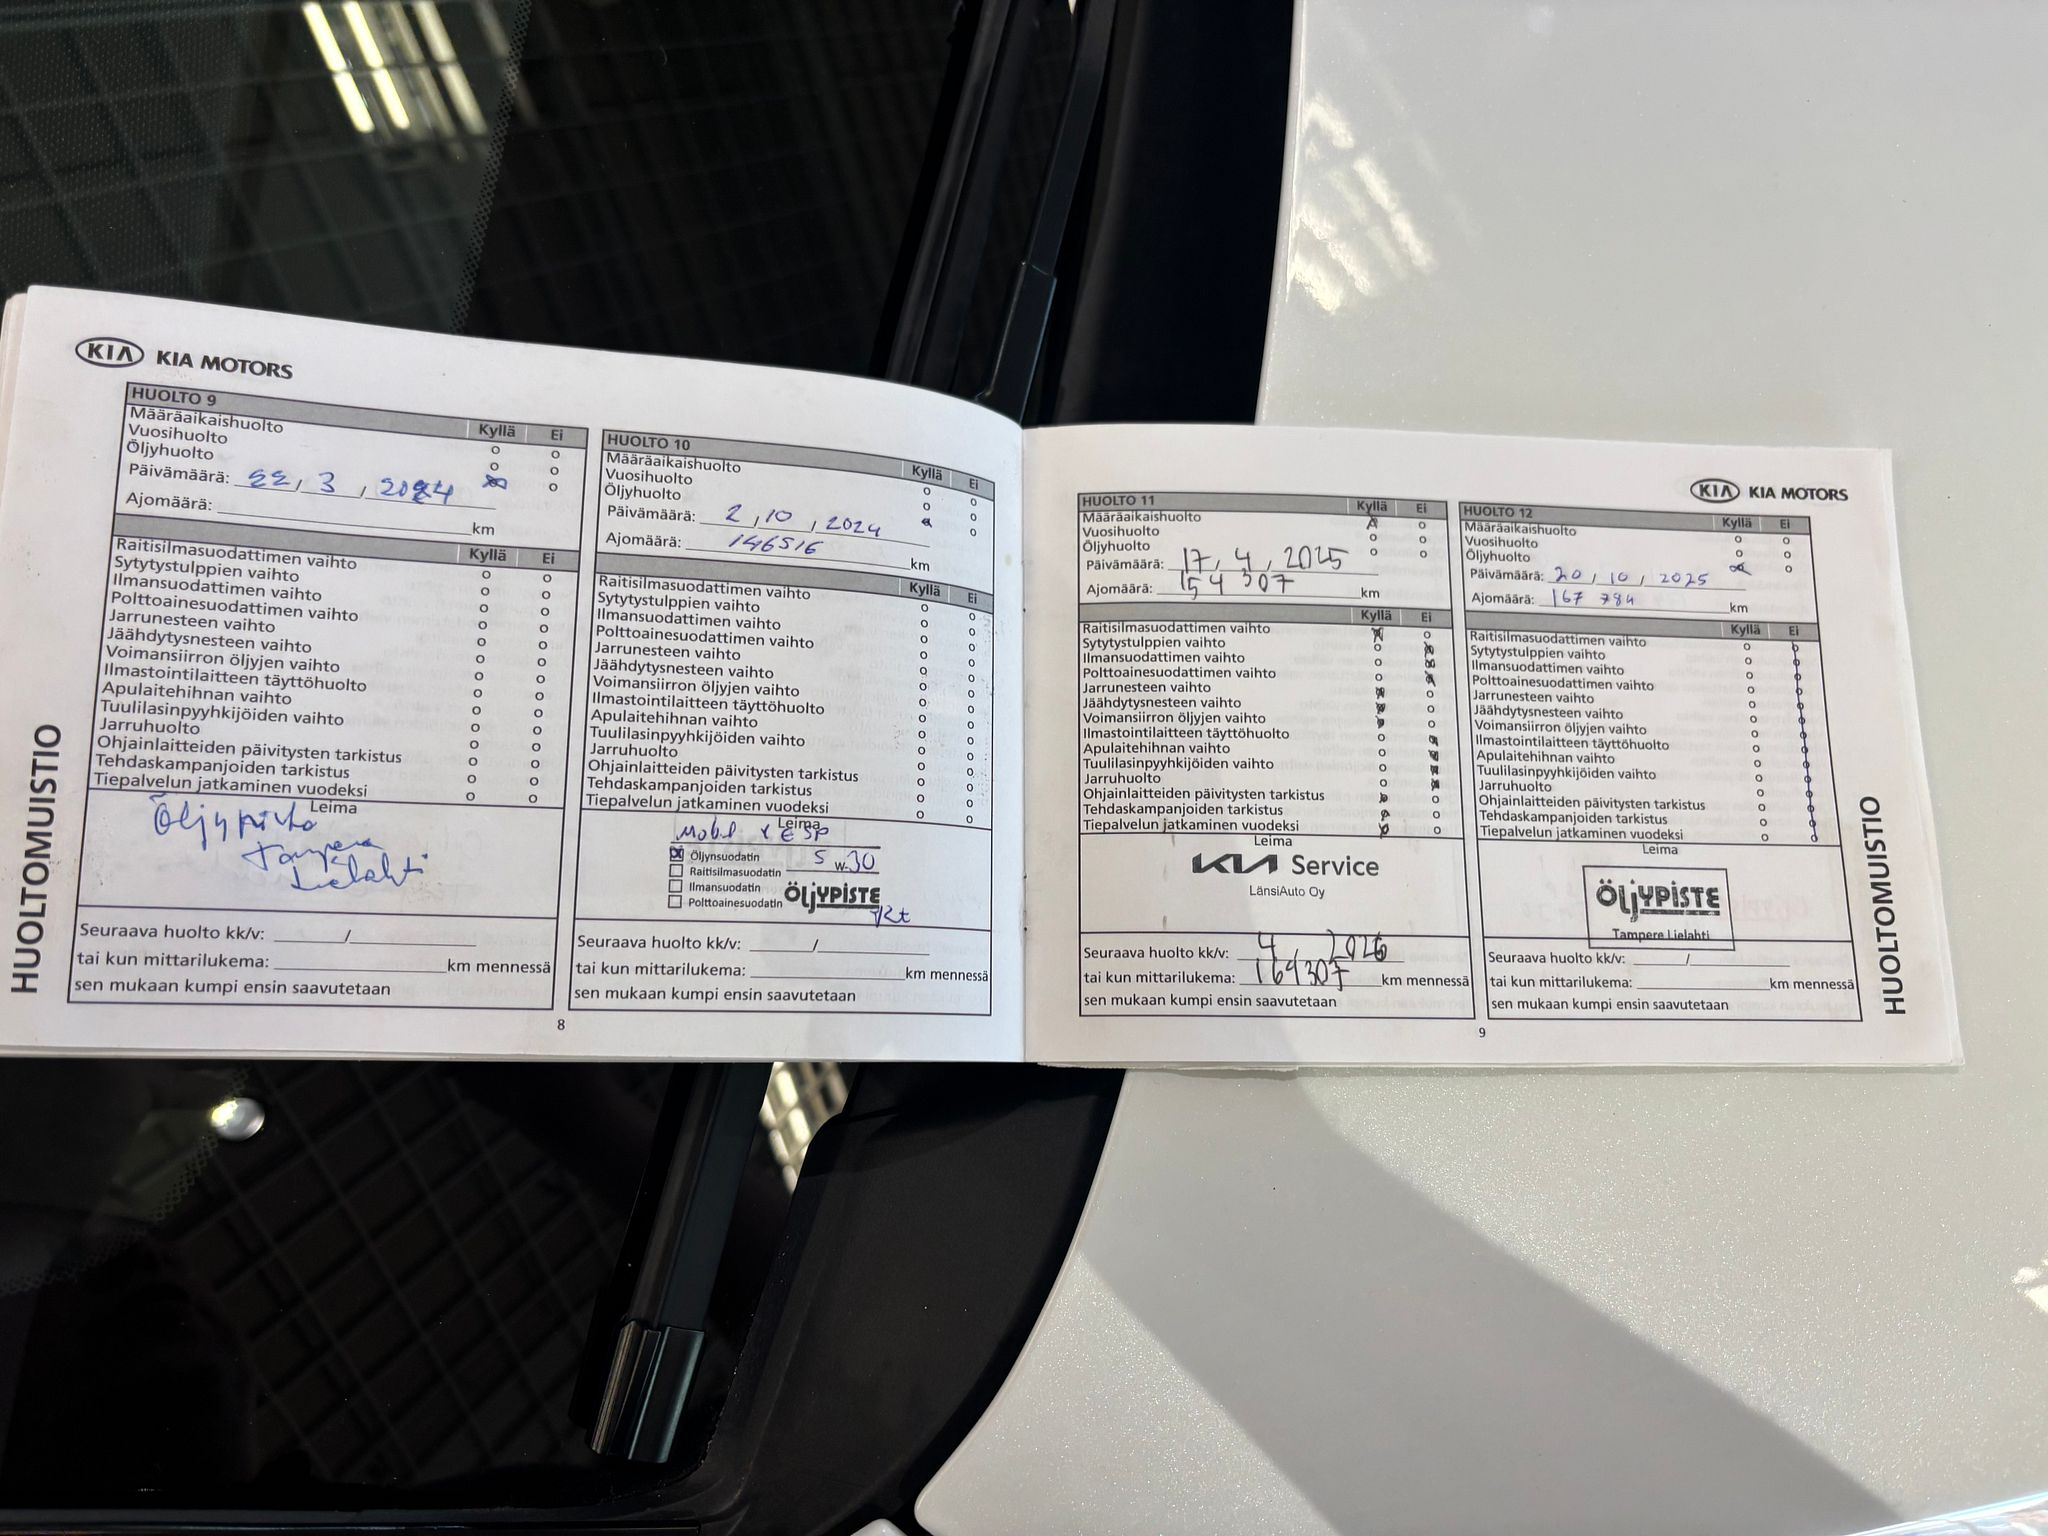 KIA KIA MOTORS
HUOLTOMUISTIO
HUOLTO 9
Kyllä Ei
Määräaikaishuolto
Vuosihuolto
Öljyhuolto
Päivämäärä: 22, 3, 2024
Ajomäärä: km
Kyllä Ei
Raitisilmasuodattimen vaihto
Sytytystulppien vaihto
Ilmansuodattimen vaihto
Polttoainesuodattimen vaihto
Jarrunesteen vaihto
Jäähdytysnesteen vaihto
Voimansiirron öljyjen vaihto
Ilmastointilaitteen täyttöhuolto
Apulaitehihnan vaihto
Tuulilasinpyyhkijöiden vaihto
Jarruhuolto
Ohjainlaitteiden päivitysten tarkistus
Tehdaskampanjoiden tarkistus
Tiepalvelun jatkaminen vuodeksi
Leima
Öljypiste
Tampere
Lielahti
Seuraava huolto kk/v: /
tai kun mittarilukema: km mennessä
sen mukaan kumpi ensin saavutetaan
HUOLTO 10
Kyllä Ei
Määräaikaishuolto
Vuosihuolto
Öljyhuolto
Päivämäärä: 2, 10, 2024
Ajomäärä: 146516 km
Kyllä Ei
Raitisilmasuodattimen vaihto
Sytytystulppien vaihto
Ilmansuodattimen vaihto
Polttoainesuodattimen vaihto
Jarrunesteen vaihto
Jäähdytysnesteen vaihto
Voimansiirron öljyjen vaihto
Ilmastointilaitteen täyttöhuolto
Apulaitehihnan vaihto
Tuulilasinpyyhkijöiden vaihto
Jarruhuolto
Ohjainlaitteiden päivitysten tarkistus
Tehdaskampanjoiden tarkistus
Tiepalvelun jatkaminen vuodeksi
Leima
Mobil ESP
Öljynsuodatin 5 W-30
Raitisilmasuodatin
Ilmansuodatin
Polttoainesuodatin ÖLJYPISTE
Seuraava huolto kk/v: /
tai kun mittarilukema: km mennessä
sen mukaan kumpi ensin saavutetaan
8
KIA KIA MOTORS
HUOLTOMUISTIO
HUOLTO 11
Kyllä Ei
Määräaikaishuolto
Vuosihuolto
Öljyhuolto
Päivämäärä: 17, 4, 2025
Ajomäärä: 154 307 km
Kyllä Ei
Raitisilmasuodattimen vaihto
Sytytystulppien vaihto
Ilmansuodattimen vaihto
Polttoainesuodattimen vaihto
Jarrunesteen vaihto
Jäähdytysnesteen vaihto
Voimansiirron öljyjen vaihto
Ilmastointilaitteen täyttöhuolto
Apulaitehihnan vaihto
Tuulilasinpyyhkijöiden vaihto
Jarruhuolto
Ohjainlaitteiden päivitysten tarkistus
Tehdaskampanjoiden tarkistus
Tiepalvelun jatkaminen vuodeksi
Leima
KIA Service
LänsiAuto Oy
Seuraava huolto kk/v: 4, 2026
tai kun mittarilukema: 169307 km mennessä
sen mukaan kumpi ensin saavutetaan
HUOLTO 12
Kyllä Ei
Määräaikaishuolto
Vuosihuolto
Öljyhuolto
Päivämäärä: 20, 10, 2025
Ajomäärä: 167 784 km
Kyllä Ei
Raitisilmasuodattimen vaihto
Sytytystulppien vaihto
Ilmansuodattimen vaihto
Polttoainesuodattimen vaihto
Jarrunesteen vaihto
Jäähdytysnesteen vaihto
Voimansiirron öljyjen vaihto
Ilmastointilaitteen täyttöhuolto
Apulaitehihnan vaihto
Tuulilasinpyyhkijöiden vaihto
Jarruhuolto
Ohjainlaitteiden päivitysten tarkistus
Tehdaskampanjoiden tarkistus
Tiepalvelun jatkaminen vuodeksi
Leima
ÖLJYPISTE
Tampere Lielahti
Seuraava huolto kk/v: /
tai kun mittarilukema: km mennessä
sen mukaan kumpi ensin saavutetaan
9